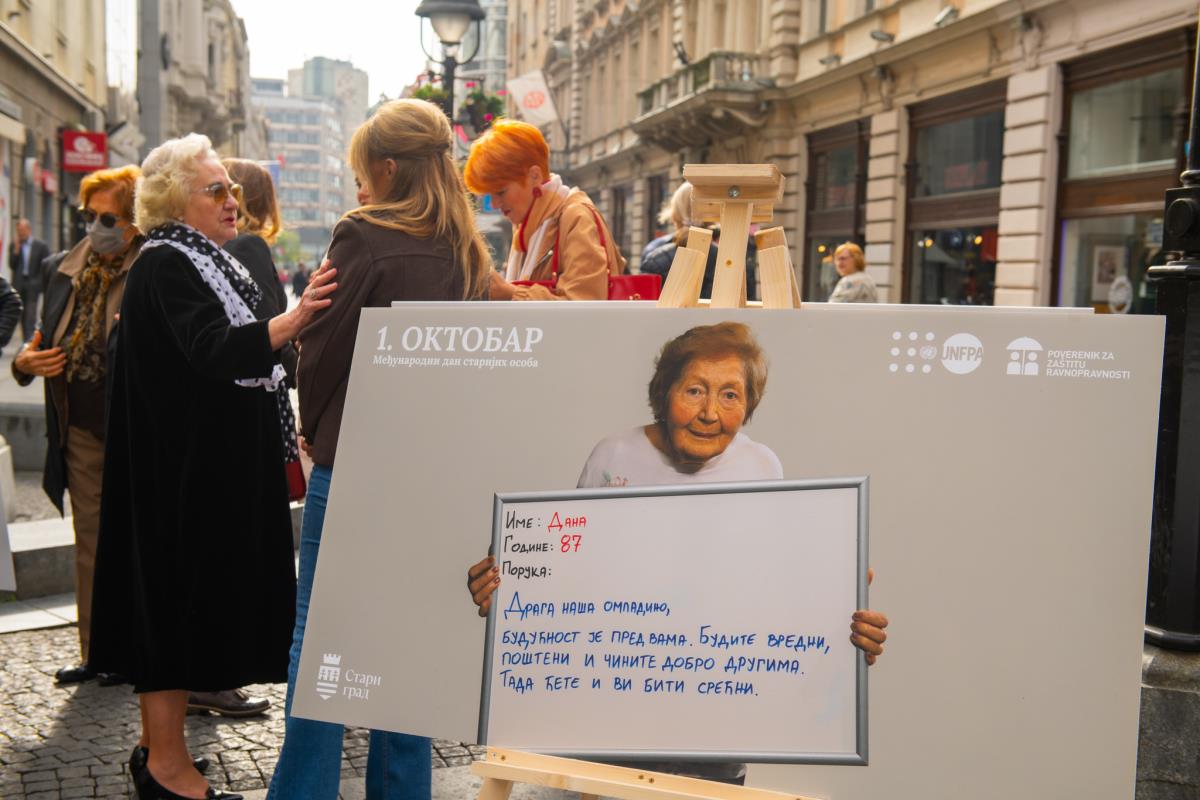 1. ОКТОБАР
Међународни дан старијих особа
UNFPA
POVERENIK ZA
ZAŠTITU
RAVNOPRAVNOSTI
Име: Дана
Године: 87
Порука:
Драга наша омладино,
будућност је пред вама. Будите вредни,
поштени и чините добро другима.
Тада ћете и ви бити срећни.
Стари
град